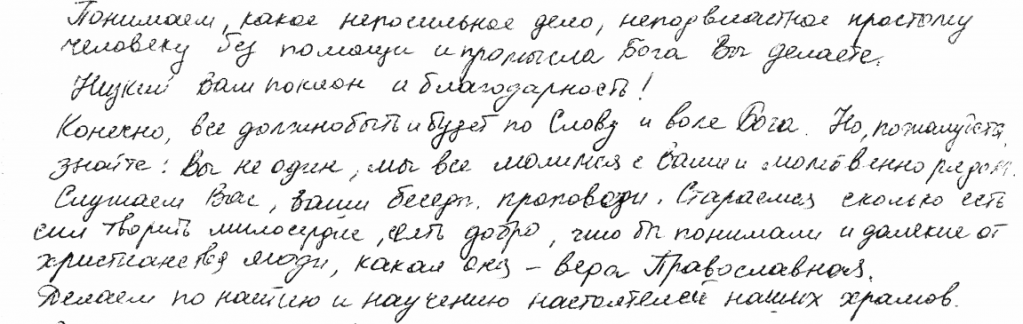 Понимаем, какое непосильное дело, неподвластное простому
человеку без помощи и промысла Бога Вы делаете.
Низкий Вам поклон и благодарность!
Конечно, все должно быть и будет по Слову и воле Бога. Но, пожалуйста,
знайте: Вы не один, мы все молимся с Вами и молитвенно рядом.
Слушаем Вас, Ваши беседы, проповеди. Стараемся сколько есть
сил творить милосердие, сеять добро, что бы понимали и далекие от
христианства люди, какая она – вера Православная.
Делаем по наитию и научению настоятелей наших храмов.